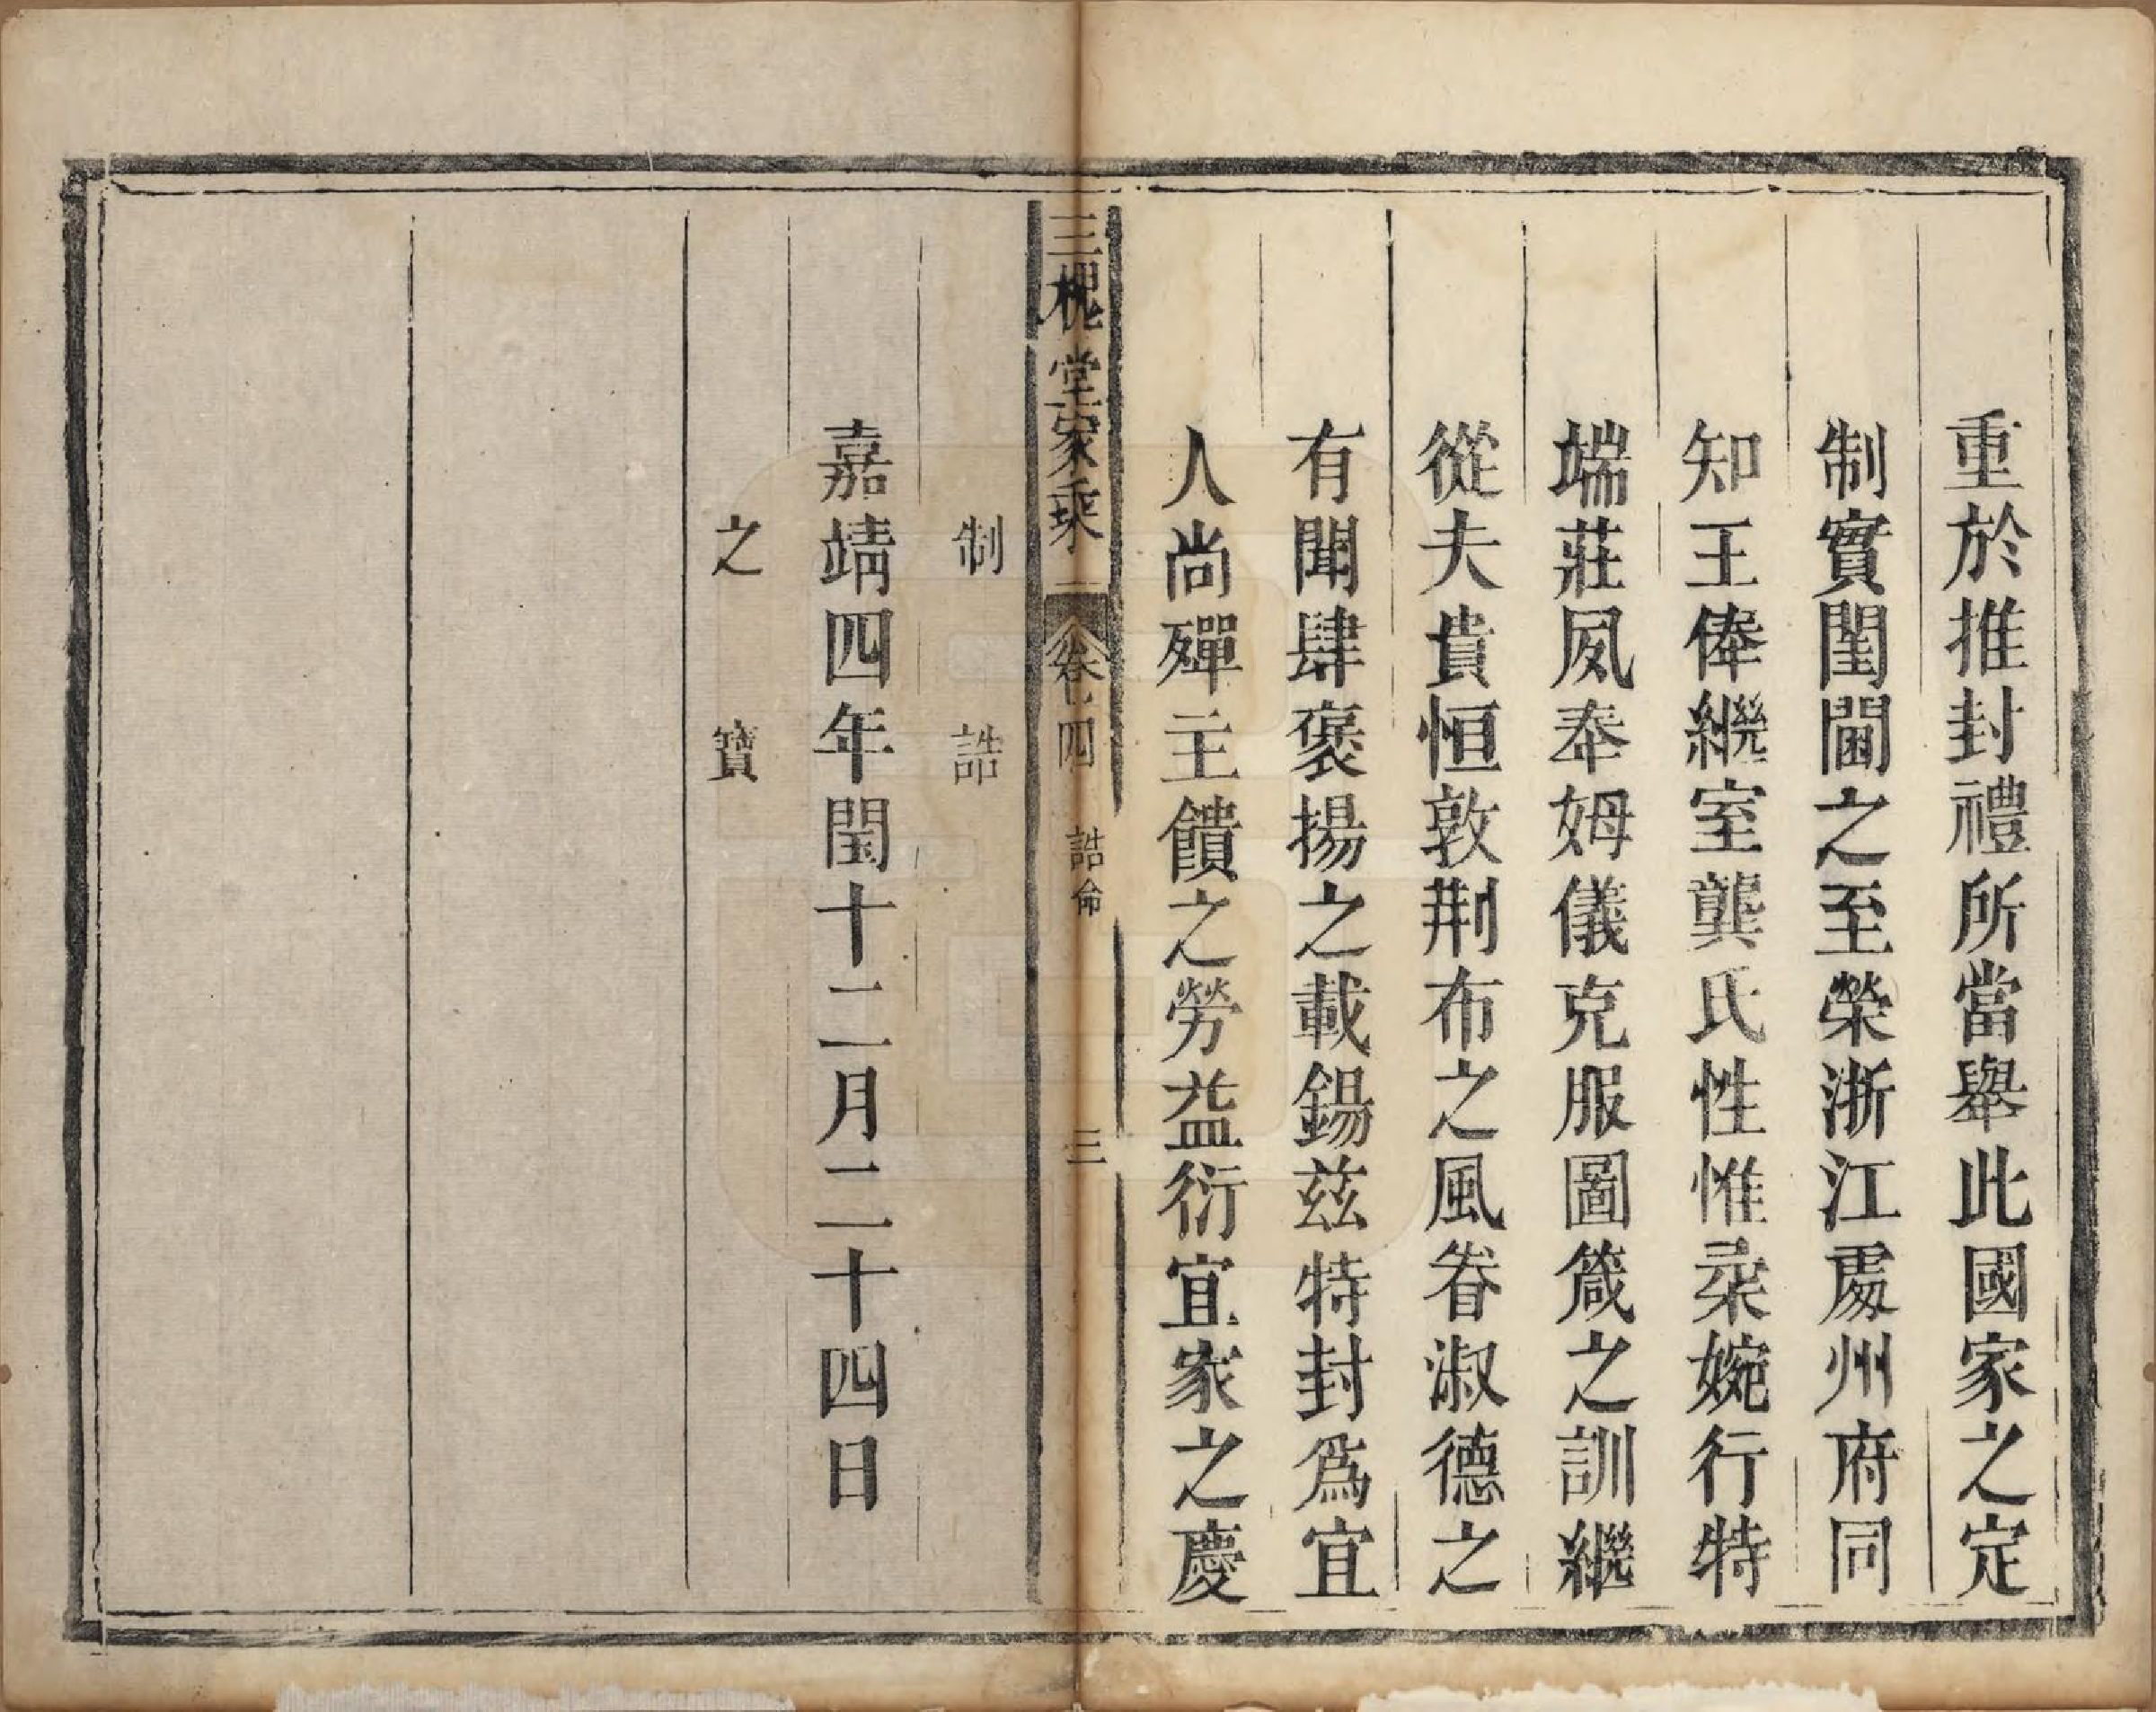 重於推封禮所當舉此國家之定
制實閨閫之至榮浙江處州府同
知王俸繼室龔氏性惟柔婉行特
端莊夙奉姆儀克服圖箴之訓繼
從夫貴恒敦荆布之風眷淑德之
有聞肆褒揚之載錫兹特封爲宜
人尚殫主饋之勞益衍宜家之慶
三槐堂家乘 卷四 誥命 三
制誥
嘉靖四年閏十二月二十四日
之寶